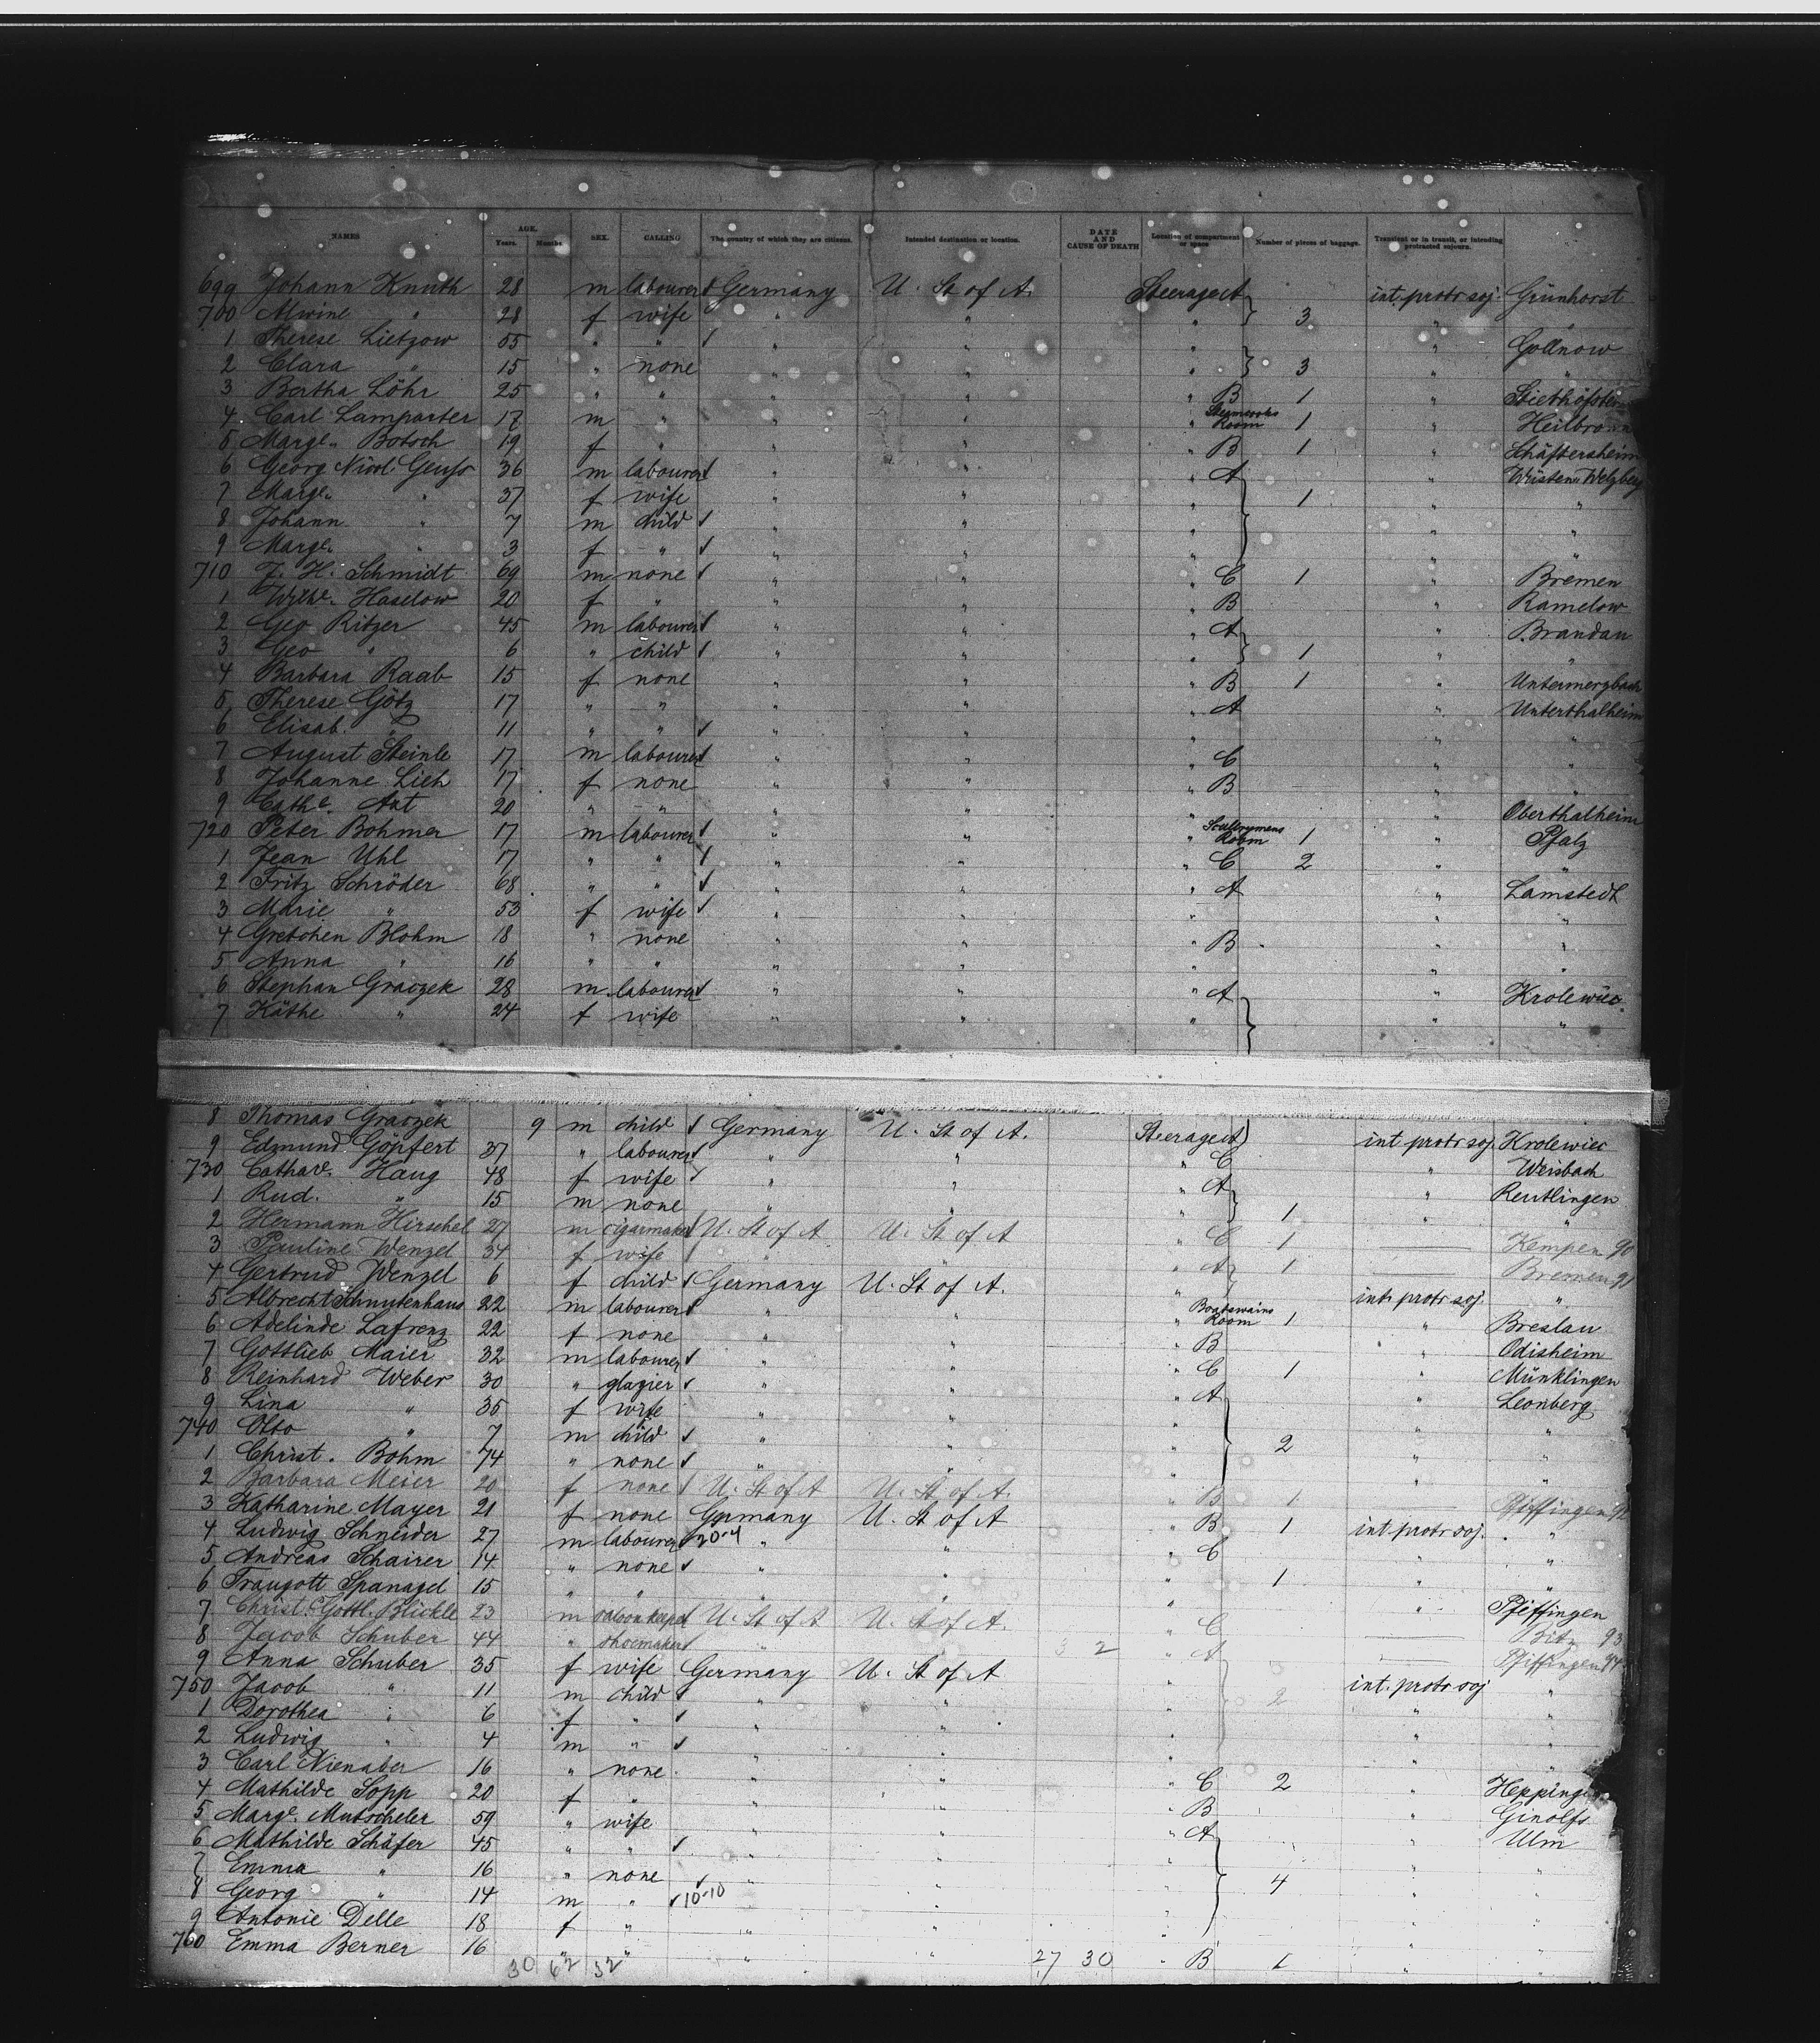 NAMES AGE. Years. Months. SEX. CALLING The country of which they are citizens. Intended destination or location. DATE AND CAUSE OF DEATH Location of compartment or space Number of pieces of baggage. Transient or in transit, or intending protracted sojourn.
699 Johann Knuth 28 m labourer Germany U. St of A. Steerage A int. protr soj. Grünhorst
700 Alwine " 28 f wife " " " 3 " "
1 Therese Lietzow 55 " " " " " " Gollnow
2 Clara " 15 " none " " " 3 " "
3 Bertha Löhr 25 " " " " " B 1 "
4 Carl Lamparter 17 m " " " " Room 1 " Heilbronn
5 Marge. Botsch 19 f " " " " B 1 " Schäftersheim
6 Georg Nicol 36 m labourer " " " A "
7 Marge. " 37 f wife " " " 1 " "
8 Johann " 7 m child " " " " "
9 Marge. " 3 f " " " " " "
710 J. H. Schmidt 69 m none " " " C 1 " Bremen
1 Wilhe. Haselow 20 f " " " " B " Ramelow
2 Geo Ritzer 45 m labourer " " " A " Brandau
3 Geo " 6 " child " " " 1 " "
4 Barbara Raab 15 f none " " " B 1 " Untermerzbach
5 Therese Götz 17 " " " " " A " Unterthalheim
6 Elisab. " 11 " " " " " " "
7 August Steinle 17 m labourer " " " C " "
8 Johanne Lieh 17 f none " " " B " "
9 Cathe. Ant 20 " " " " " " Oberthalheim
720 Peter Bohmer 17 m labourer " " " Room 1 " Pfalz
1 Jean Uhl 17 " " " " " C 2 " "
2 Fritz Schröder 68 " " " " " A " Lamstedt
3 Marie " 53 f wife " " " " "
4 Gretchen Blohm 18 " none " " " B " "
5 Anna " 16 " " " " " " "
6 Stephan Graczek 28 m labourer " " " A " Krolewiec
7 Käthe " 24 f wife " " " " "
8 Thomas Graczek 9 m child Germany U. St of A. Steerage A int protr soj. Krolewiec
9 Edmund Göpfert 37 " labourer " " " C " Weisbach
730 Cathar. Haug 48 f wife " " " A " Reutlingen
1 Rud. " 15 m none " " " 1 " "
2 Hermann Hirschel 27 m cigarmaker U. St of A U. St of A " C 1 Kempen 90
3 Pauline Wenzel 34 f wife " " " A 1 Bremen 91
4 Gertrud Wenzel 6 f child Germany U. St of A. " int protr soj. "
5 Albrecht Schnutenhaus 22 m labourer " " " Boatswains Room 1 " Breslau
6 Adelinde Lafrenz 22 f none " " " B " Odisheim
7 Gottlieb Maier 32 m labourer " " " C 1 " Münklingen
8 Reinhard Weber 30 " glazier " " " A " Leonberg
9 Lina " 35 f wife " " " " "
740 Otto " 7 m child " " " 2 " "
1 Christ. Bohm 74 " none " " " " "
2 Barbara Meier 20 f none U. St of A U. St of A. " B 1 Pfeffingen 92
3 Katharine Mayer 21 f none Germany U. St of A " B 1 int protr soj. "
4 Ludwig Schneider 27 m labourer 20-4 " " " C " "
5 Andreas Schairer 14 " none " " " 1 " "
6 Traugott Spanagel 15 " " " " " " Pfeffingen
7 Christ. Gottl. Blickle 23 m saloonkeeper U. St of A U. St of A. " C Bitz 93
8 Jacob Schuber 44 " shoemaker " " 3 2 " A Pfeffingen 94
9 Anna Schuber 35 f wife Germany U. St of A " int. protr soj "
750 Jacob " 11 m child " " " 2 " "
1 Dorothea " 6 f " " " " " "
2 Ludwig " 4 m " " " " " "
3 Carl Nienaber 16 " none " " " C 2 "
4 Mathilde Sopp 20 f " " " " B " Ginolfs
5 Marge. Mutscheler 59 " wife " " " A " Ulm
6 Mathilde Schäfer 45 " " " " " " "
7 Emma " 16 " none " " " 4 " "
8 Georg " 14 m " 10-10 " " " "
9 Antonie Delle 18 f " " " " " "
760 Emma Berner 16 " " " " 27 30 " B 1 " "
30 62 32